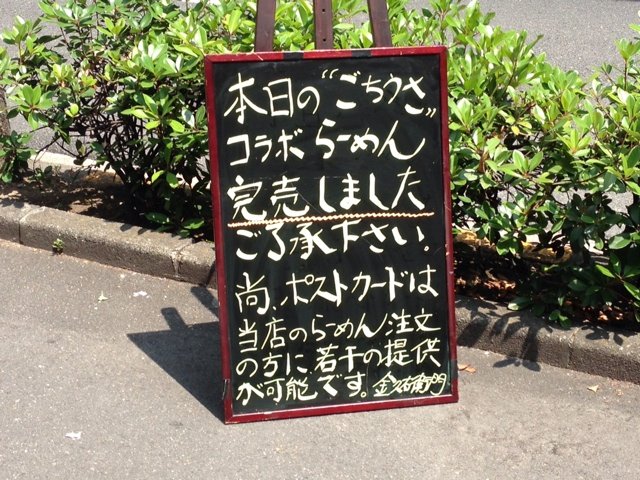 本日の“ごちうさ”
コラボらーめん
完売しました
ご了承下さい。
尚、ポストカードは
当店のらーめん注文
の方に、若干の提供
が可能です。金久右衛門